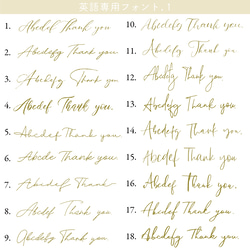 英語専用フォント.1
1. Abcdef Thank you
2. Abcdefg Thank you
3. Abcdefg Thank you
4. Abcdef Thank you.
5. Abcdef Thank you
6. Abcde Thank you
7. Abcdef Thank
8. Abcdef Thank you
9. Abcdefg Thank you
10. Abcdefg Thank you.
11. Abcdefg Thank you
12. Abcdefg Thank you
13. Abcdefg Thank you
14. Abcdefg Thank you
15. Abcdef Thank you
16. Abcdef Thank you,
17. Abcdef Thank you
18. Abcdefg Thank you